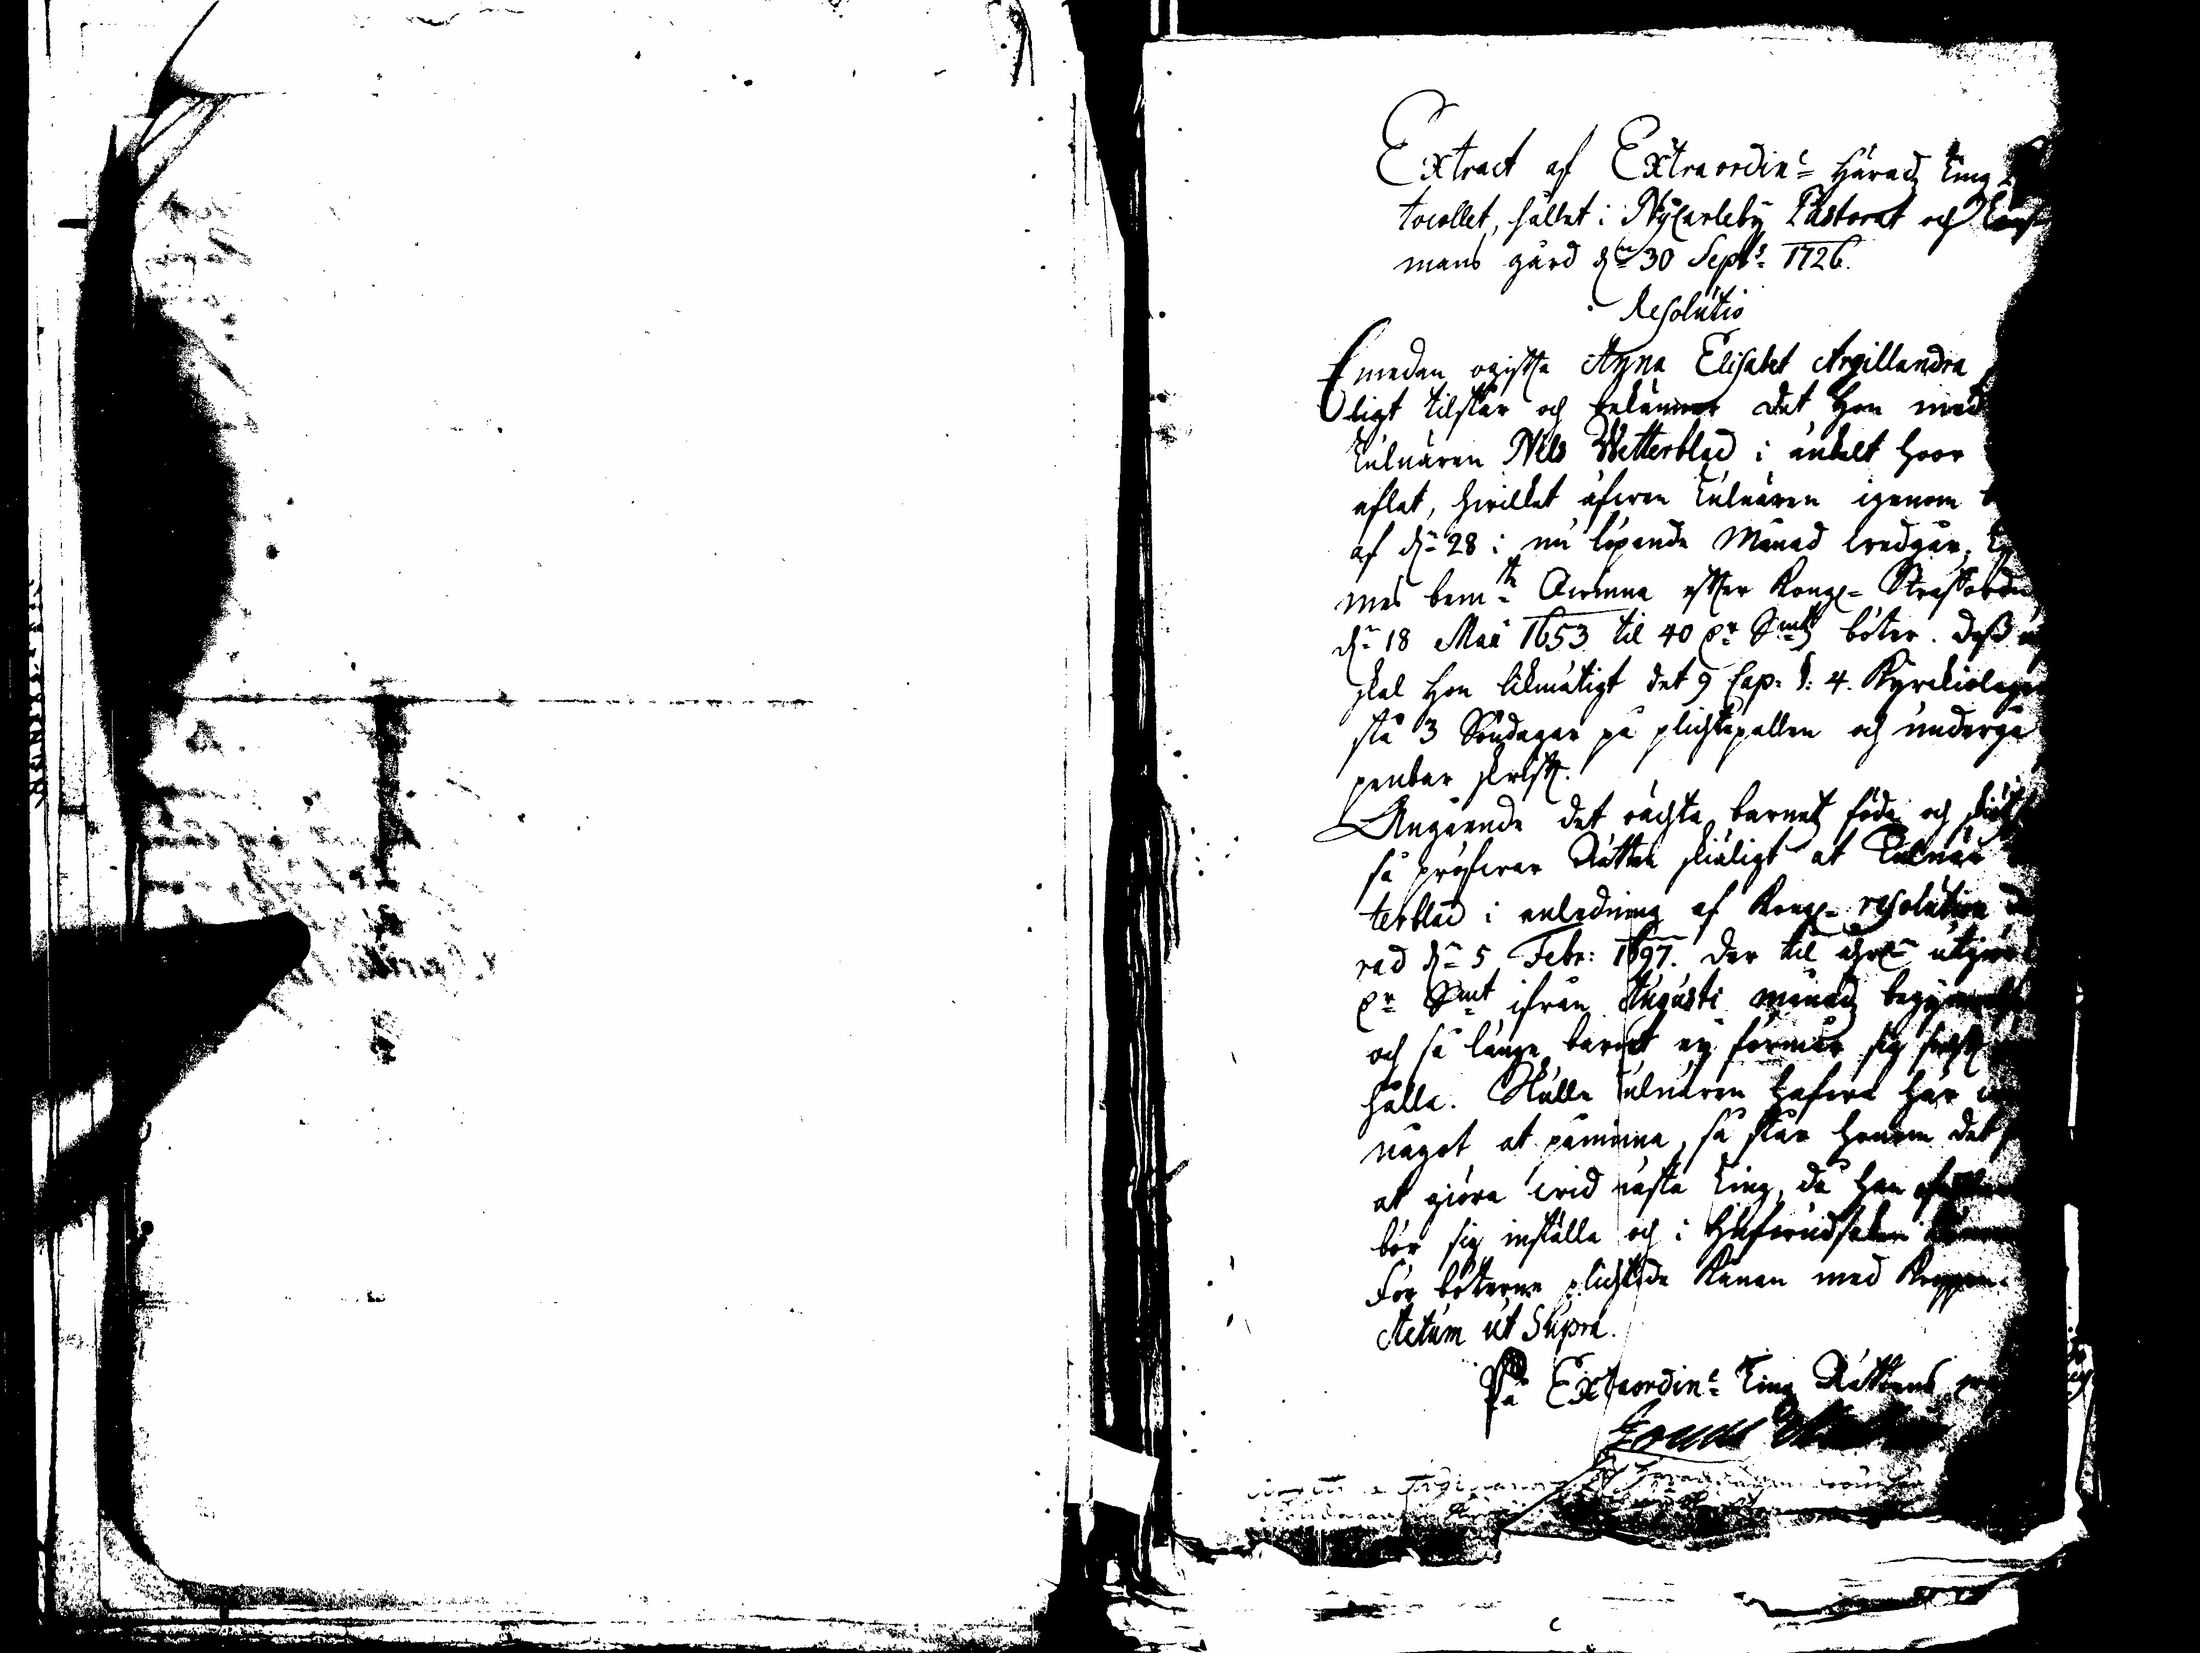 Extract af Extraordin:e Härads Ting
tocollet, hållet i Nÿcarlebÿ Pastorat och Läns-
mans gård d:n 30 Sept:s 1726.
Resolutio
Emedan ogifta Anna Elisabet Argillandra
ligt tilstår och bekänner det hon med
Tulnären Nils Wetterblad i enkelt hoor
aflat, hwilket äfwen Tulnären igenom
af d:n 28 i nu löpande Månad wedgår,
mes bem:te Qwinna efter Kongl= Straffordn
d:n 18 Maii 1653 til 40 dr Smt böter. dess
skal hon likmätigt det 9 Cap: §: 4. Kyrckiolagen
stå 3 Söndagar på plichtepallen och undergå
penbar skrift.
Angående det oächta barnets föda och
så pröfwar Rätten skiäligt at Tulnär
terblad i anledning af Kongl= resolution
rad d:n 5 Febr: 1697. der til åhrl:n utgiör
dr Smt ifrån Augusti månads begynnelse
och så länge barnet eij förmår sig sielft
hålla. Skulle Tulnären hafwa här
något at påminna, så står honom det
at giöra wid nästa Ting, då han
bör sig inställa och i Hufwudsaken
För böterne plichtade Kånan med Kroppen.
Actum ut Supra.
På Extraordin:e Ting Rättens